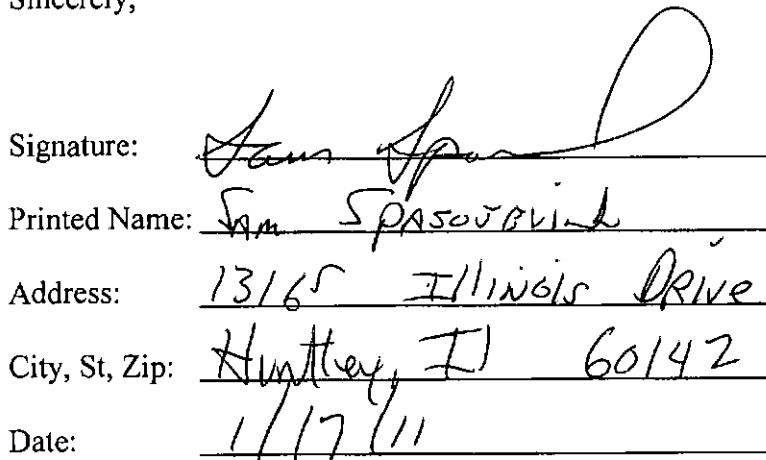 Sincerely,
Signature: Sam
Printed Name: Sam
Address: 13165 Illinois Drive
City, St, Zip: Huntley, Il 60142
Date: 1/17/11